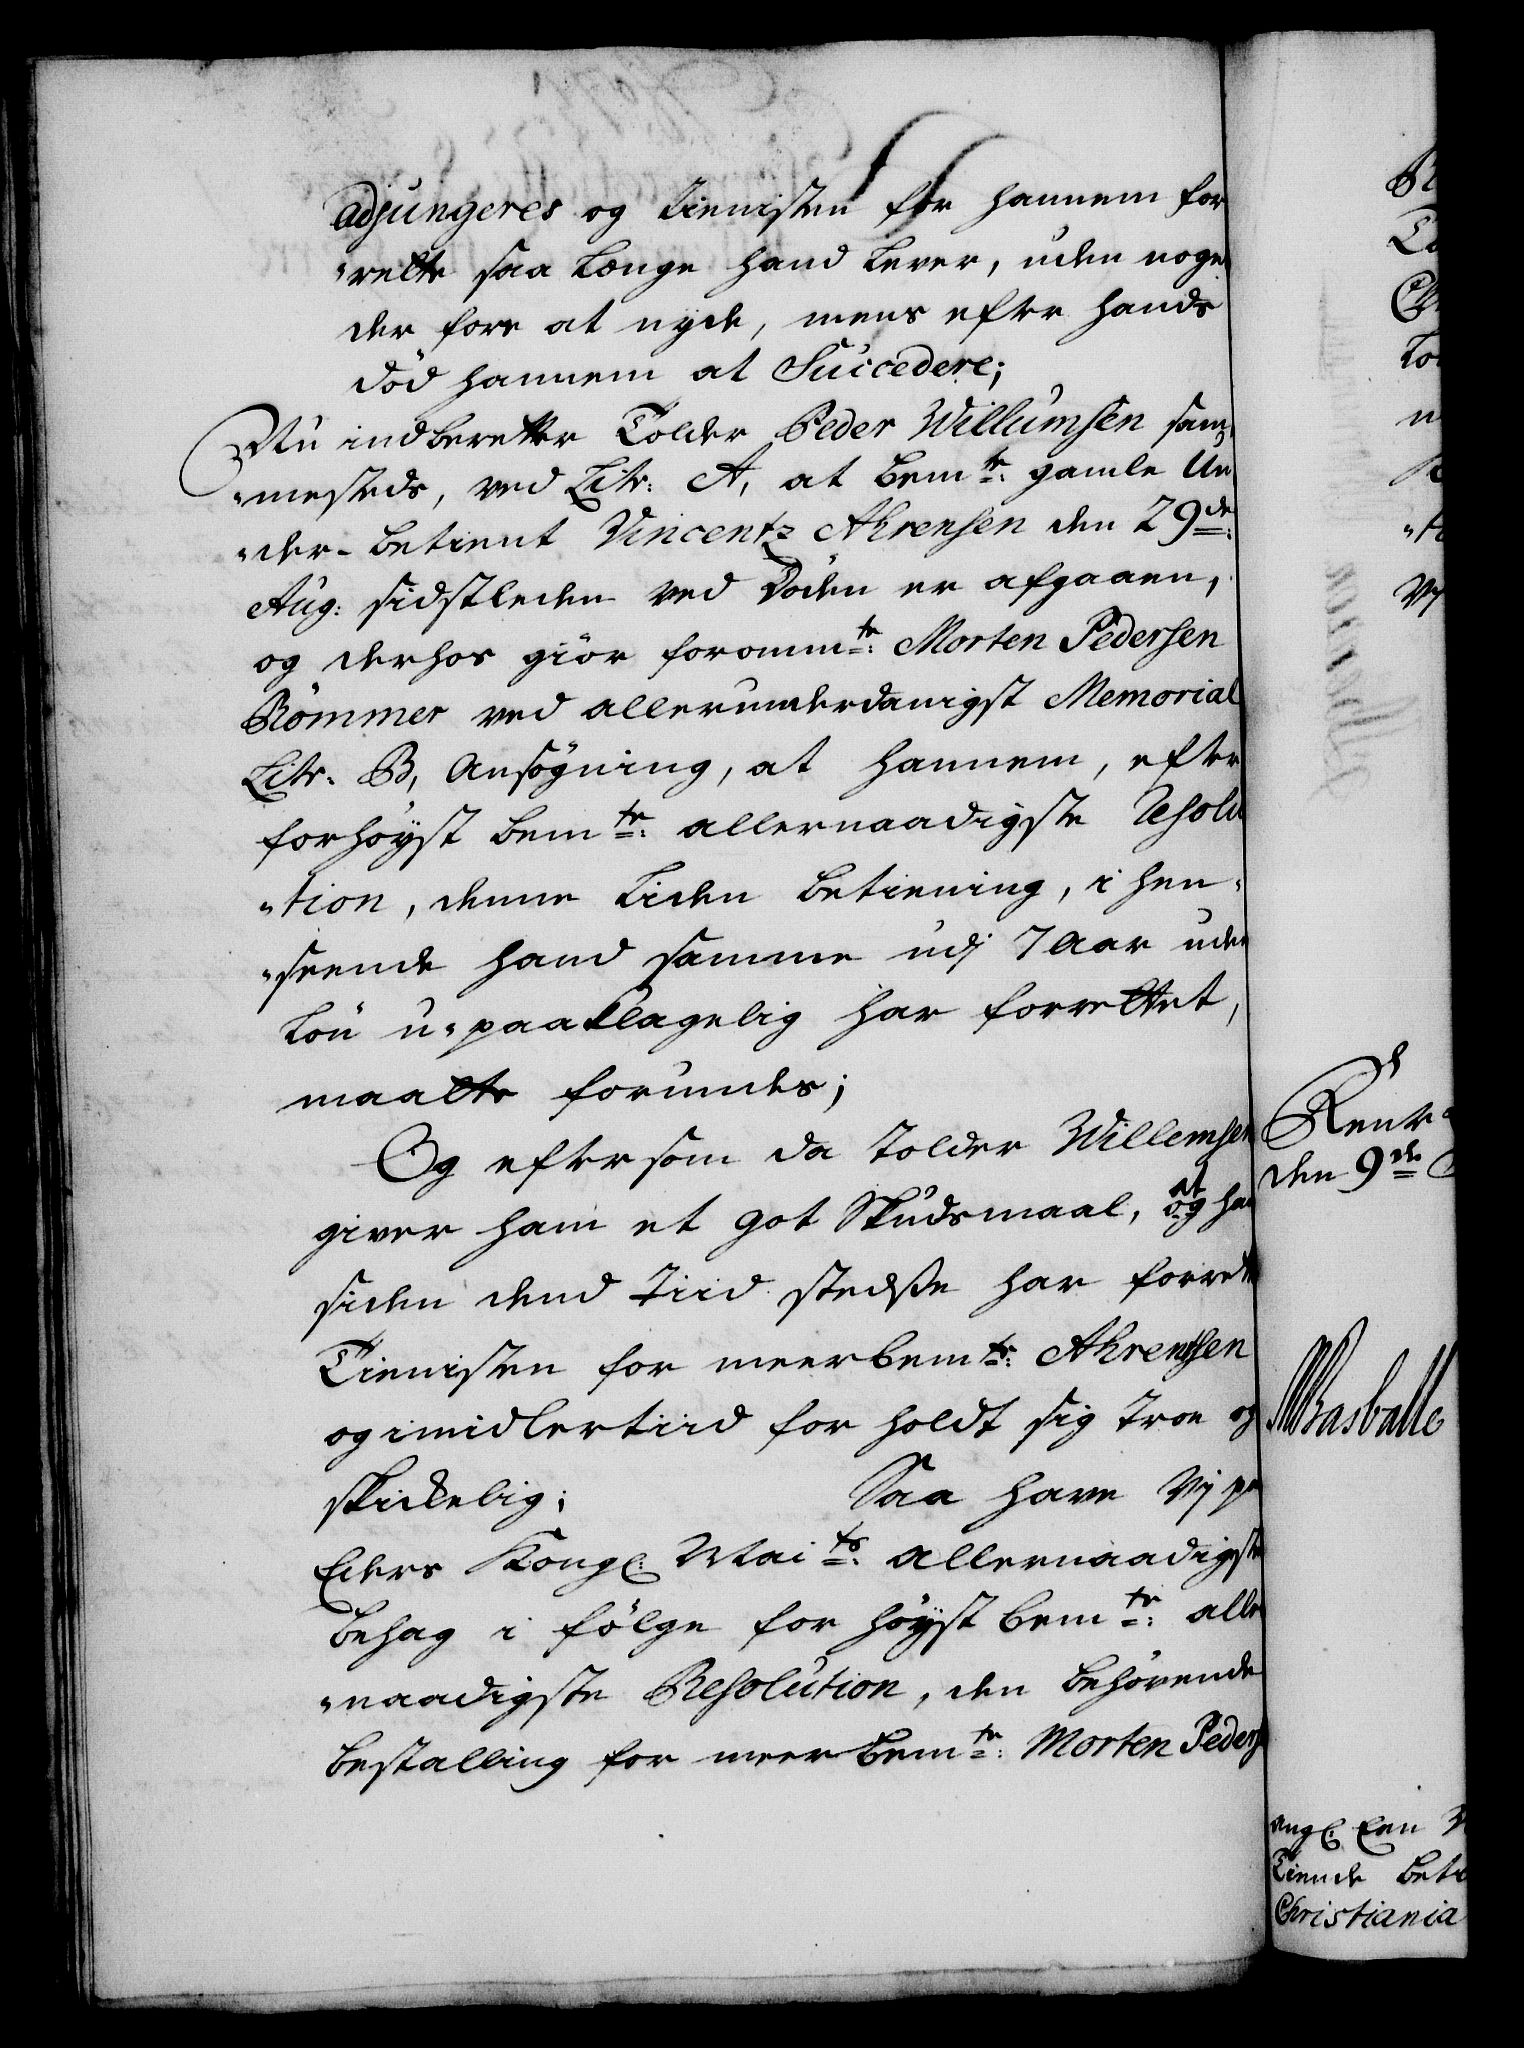 adjungeres og tienisten for hannem for
"rette saa længe hand lever, uden noged
der fore at nyde, mens efter hands
död hannem at Succedere;
Nu indberetter Tolder Peder Willumsen sam¬
"mesteds, ved Litr: A, at bemte: gamle Un
"der-betient Vincentz Ahrensen den 29de:
Aug: sidstleden ved Döden er afgaaen,
og derhos giör foromte: Morten Pedersen
Römmer ved allerunderdanigst Memorial
Litr. B, Ansögning, at hannem, efter
forhöyst bemte: allernaadigste Resolu
"tion, denne liden betiening, i hen¬
"seende hand samme udj 7 Aar uden
Lön u-paaklagelig har forrettet,
maatte forundes;
Og eftersom da Tolder Willemsen
giver ham et got Skudsmaal, og at hand
siden dend Tiid stedsse har forrett
Tienisten for meerbemte: Ahrentsen
og imidlertiid for holdt sig troe og
skickelig; Saa have Vj paa
Eders Kongl: Maits: allernaadigste
behag i fölge for höyst bemte: aller
"naadigste Resolution, den behörende
bestalling for meerbemte: Morten Peders
Rente
den 9de
Basballe
angl: Een
Tiende Beti
Christiania